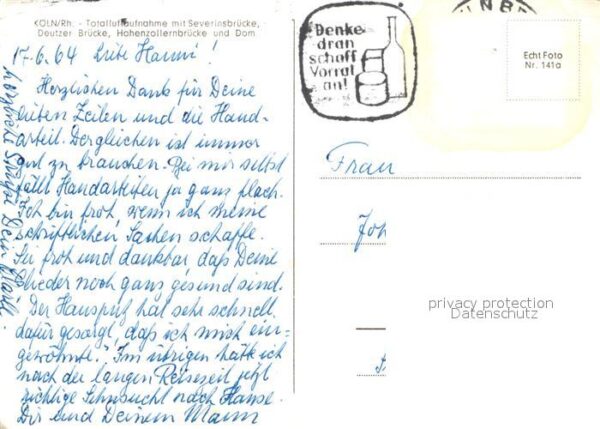 KÖLN/Rh. - Totalluftaufnahme mit Severinsbrücke,
Deutzer Brücke, Hohenzollernbrücke und Dom
17.6.64 Liebe Hanni!
Herzlichen Dank für Deine
lieben Zeilen und die Hand-
arbeit. Dergleichen ist immer
gut zu brauchen. Bei mir selbst
fällt Handarbeiten ja ganz flach.
Ich bin froh, wenn ich meine
schriftlichen Sachen schaffe.
Sei froh und dankbar, daß Deine
Glieder noch ganz gesund sind.
"Der Hausputz hat sehr schnell
dafür gesorgt, daß ich mich ein-
gewöhnte." Im übrigen hätte ich
nach der langen Reisezeit jetzt
richtige Sehnsucht nach Hause.
Dir und Deinem Mann
herzliche Grüße Dein
Denke
dran
schaff
Vorrat
an!
Echt Foto
Nr. 141a
Frau
Joh
privacy protection
Datenschutz